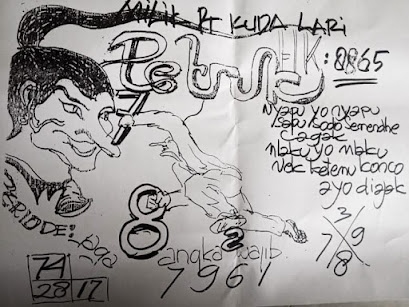 MILIK PT KUDA LARI
Petruk
HK : 8865
7
Nyapu yo nyapu
Sapu Sodo Semendhe
Cagak
Mlaku yo mlaku
Nek ketemu konco
ayo dijak
PERIODE:
8
2
angka wajib
7 9 6 1
3
7 9
8
74
28 17